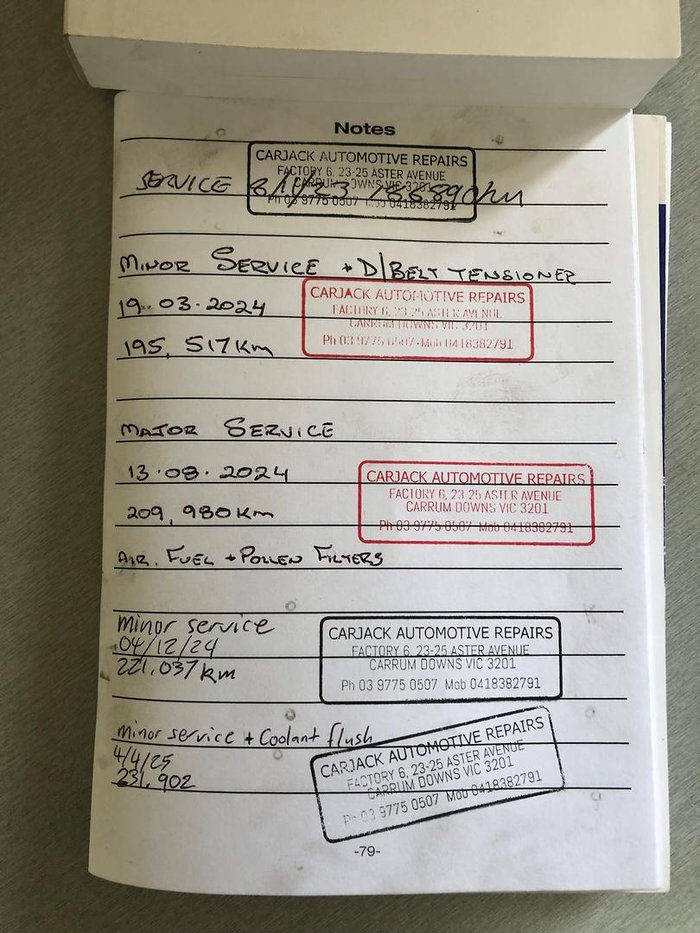 Notes
CARJACK AUTOMOTIVE REPAIRS
FACTORY 6, 23-25 ASTER AVENUE
CARRUM DOWNS VIC 3201
Ph 03 9775 0507 Mob 0418382791
SERVICE
MINOR SERVICE + D/BELT TENSIONER
19.03.2024
195,517Km
CARJACK AUTOMOTIVE REPAIRS
FACTORY 6, 23-25 ASTER AVENUE
CARRUM DOWNS VIC 3201
Ph 03 9775 0507 Mob 0418382791
MAJOR SERVICE
13.08.2024
209,980Km
AIR, FUEL + POLLEN FILTERS
CARJACK AUTOMOTIVE REPAIRS
FACTORY 6, 23-25 ASTER AVENUE
CARRUM DOWNS VIC 3201
Ph 03 9775 0507 Mob 0418382791
Minor service
04/12/24
221,037km
CARJACK AUTOMOTIVE REPAIRS
FACTORY 6, 23-25 ASTER AVENUE
CARRUM DOWNS VIC 3201
Ph 03 9775 0507 Mob 0418382791
Minor service + Coolant flush
4/4/25
231,902
CARJACK AUTOMOTIVE REPAIRS
FACTORY 6, 23-25 ASTER AVENUE
CARRUM DOWNS VIC 3201
Ph 03 9775 0507 Mob 0418382791
-79-